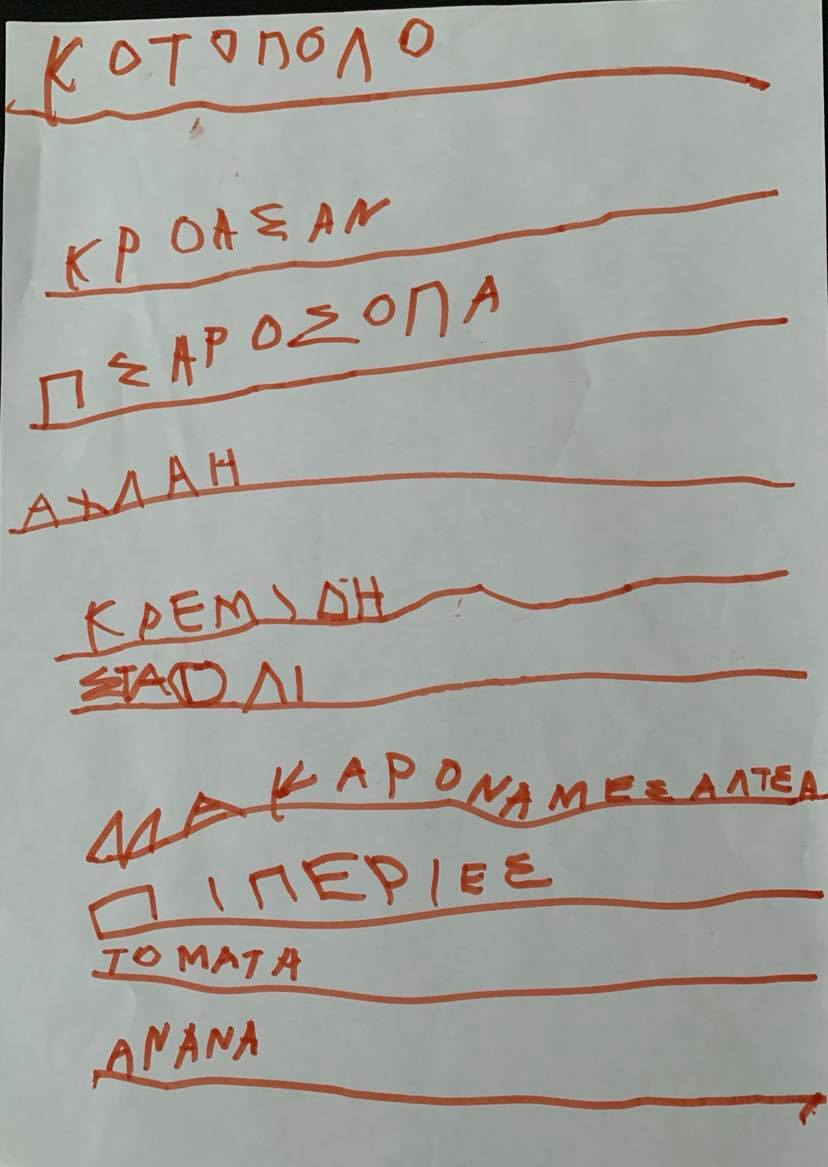 ΚΟΤΟΠΟΛΟ
ΚΡΟΑΣΑΝ
ΠΣΑΡΟΣΟΠΑ
ΑΧΛΑΗ
ΚΡΕΜΙΔΗ
ΣΤΑΦΛΙ
ΜΑΚΑΡΟΝΑΜΕΣΑΛΤΣΑ
ΠΙΠΕΡΙΕΣ
ΤΟΜΑΤΑ
ΑΝΑΝΑ